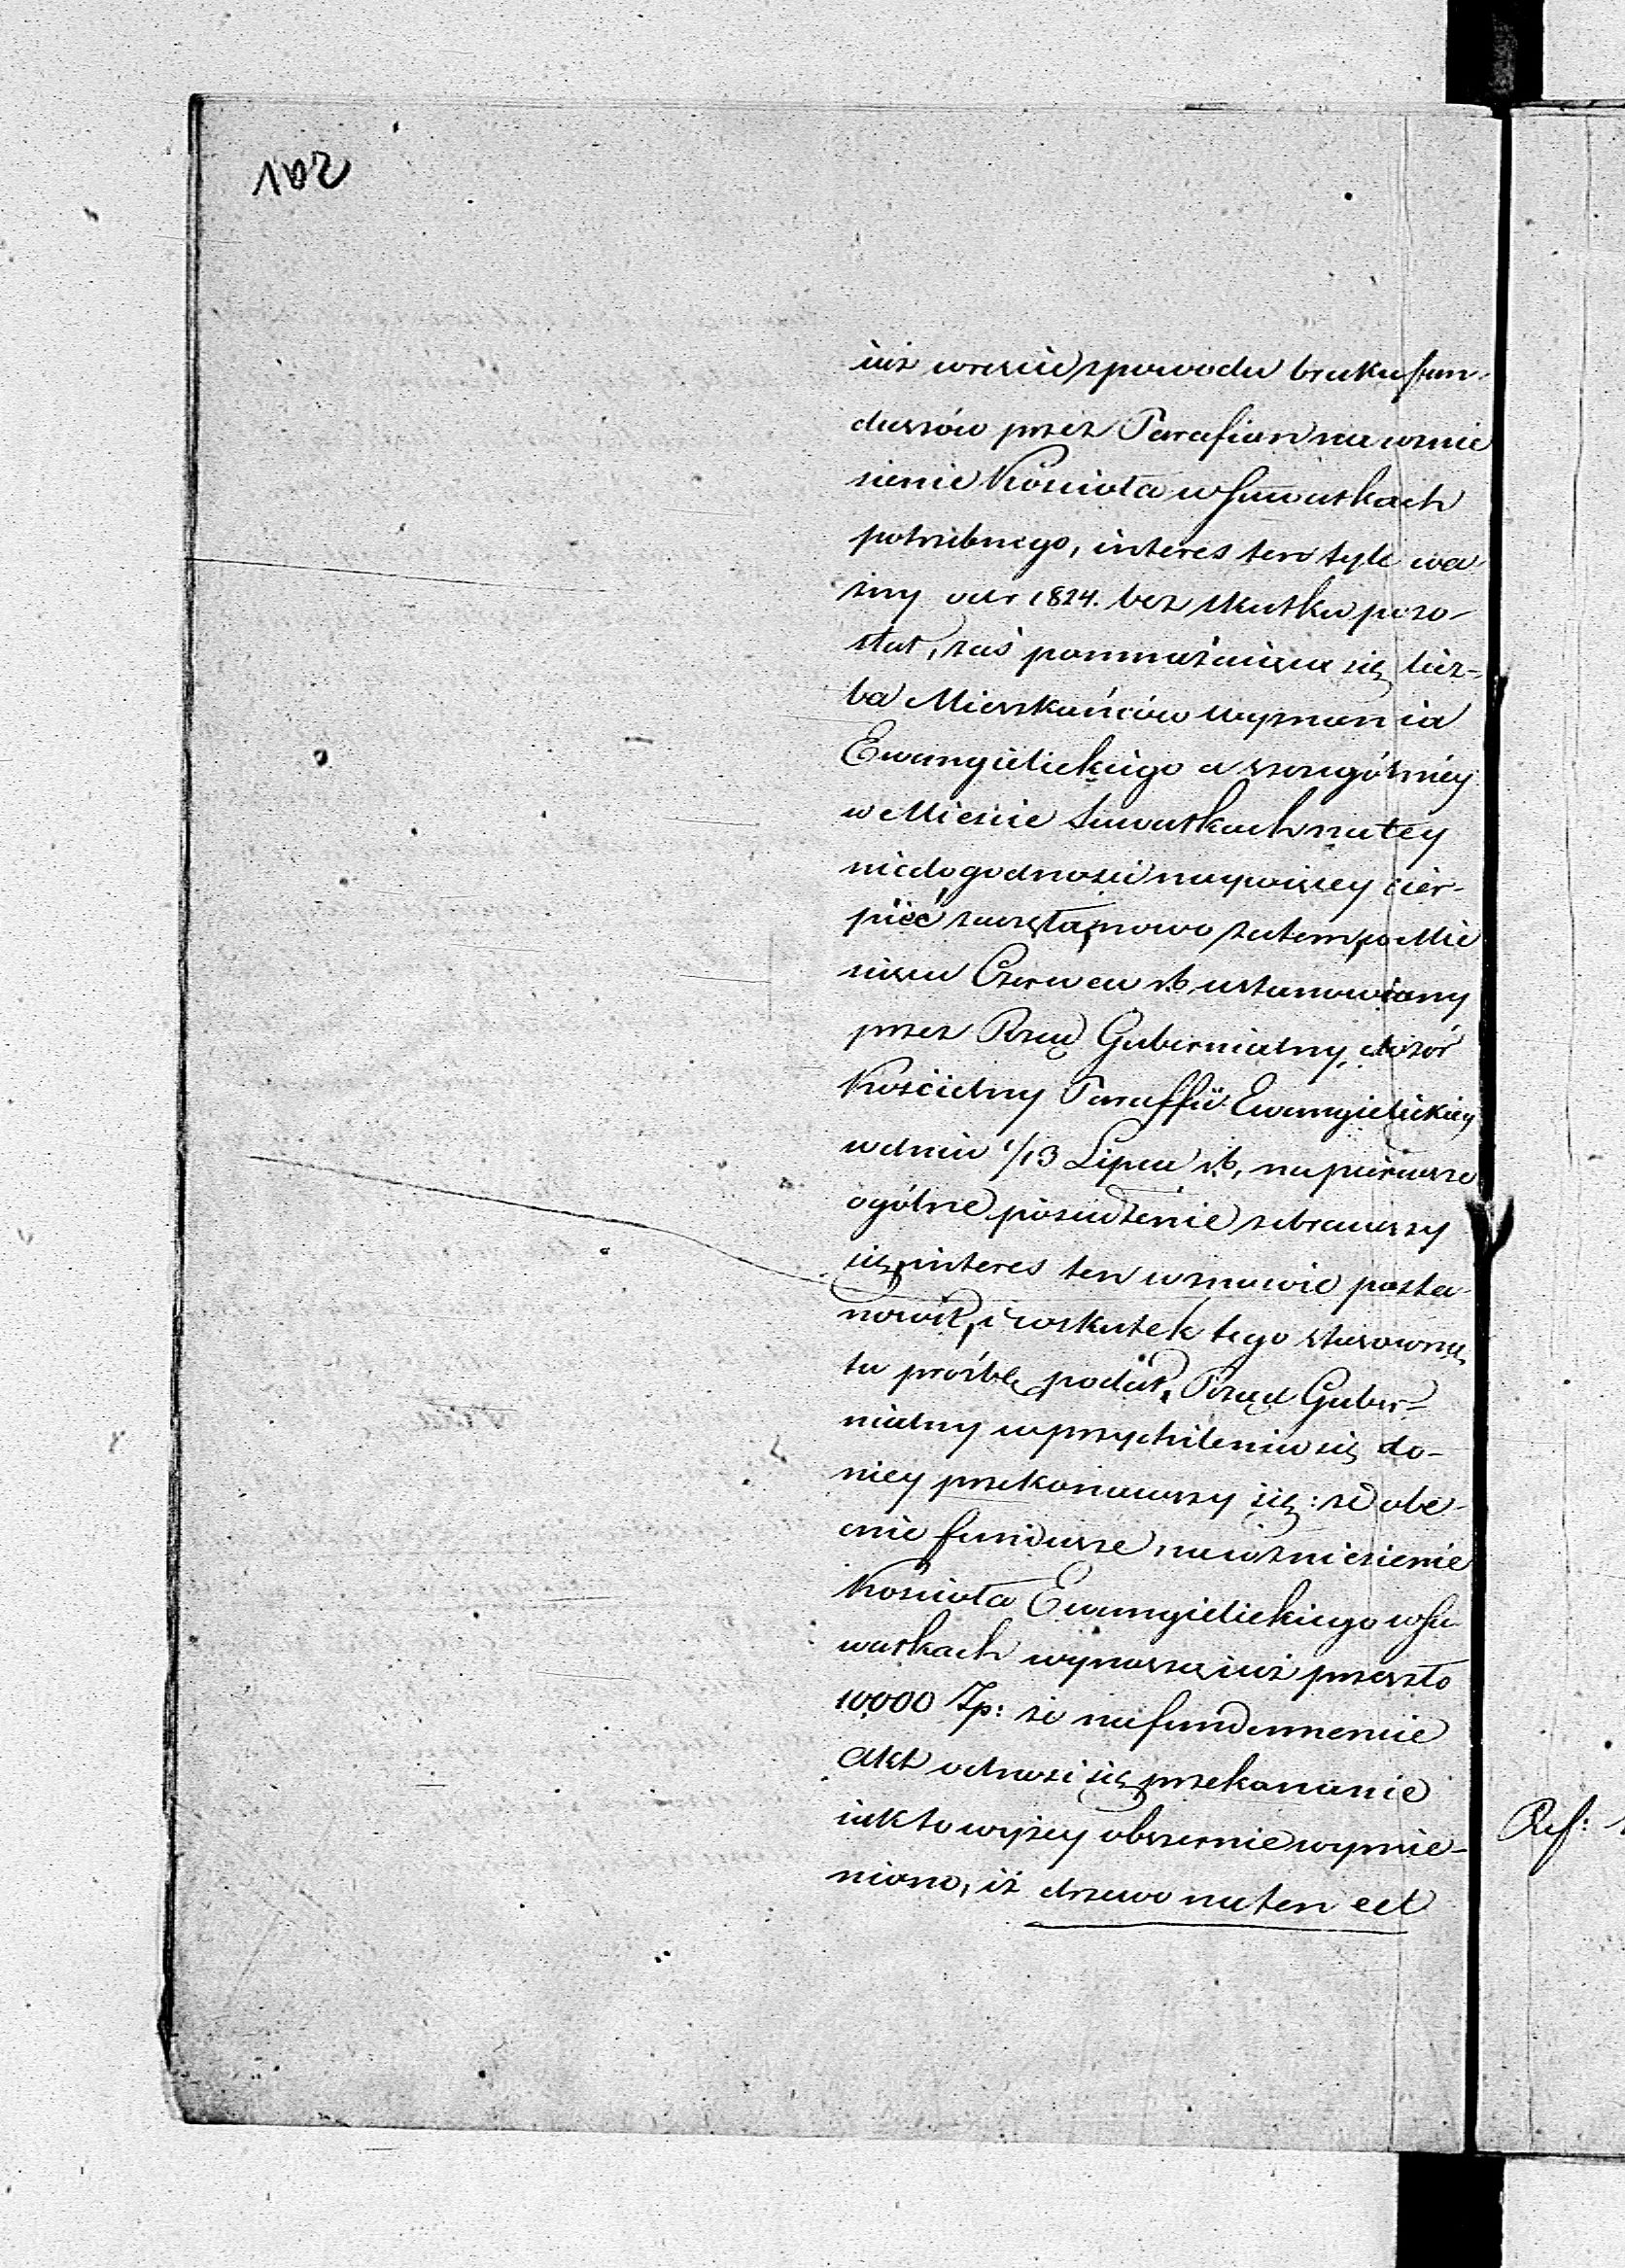 102
iuż wresciе z powodu braku fun-
duszów przez Parafian na wznie
sienie Kościoła w Suwałkach
potrzebnego, interes ten tyle wa-
żny od r 1824. bez skutku pozo-
stał, zaś pomnażaiąca się licz-
ba Mieszkańców wyznania
Ewangielickiego a szczególniéy
w Mieście Suwałkach na tey
niedogodności naywięcey cier-
piéć zaczęła, nowo zatem, po Mie
siącu Czerwcu rb ustanowiony
przez Rząd Gubernialny, dozór
Kościelny Paraffii Ewangielickiey
w dniu 1/13 Lipca rb, na pierwsze
ogólne posiedzenie zebrawszy
się, interes ten wznowić posta-
nowił, i w skutek tego stosowną
tu prośbę podał, Rząd Guber-
nialny w przychileniu się do-
niey przekonawszy się: że obe-
cnie fundusze, na wzniesienie
Kościoła Ewangielickiego w Su-
wałkach wynoszą iuż przeszło
10000 Zp: że na fundamencie
Akt odnosi się przekonanie
iak to wyżey obszernie wymie-
niono, iż drzewo na ten cel
Ref: